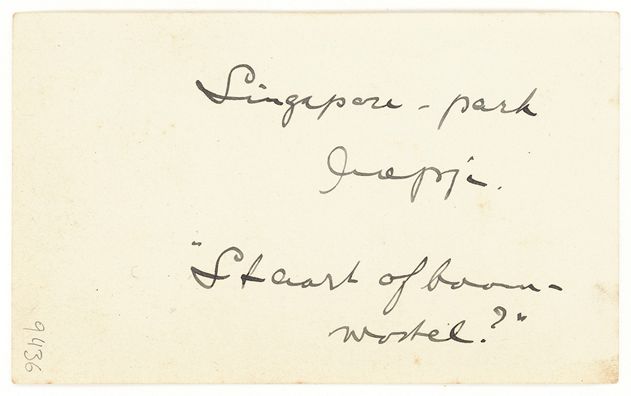 Singapore - park
"Staart of boom-
wortel?"
9436